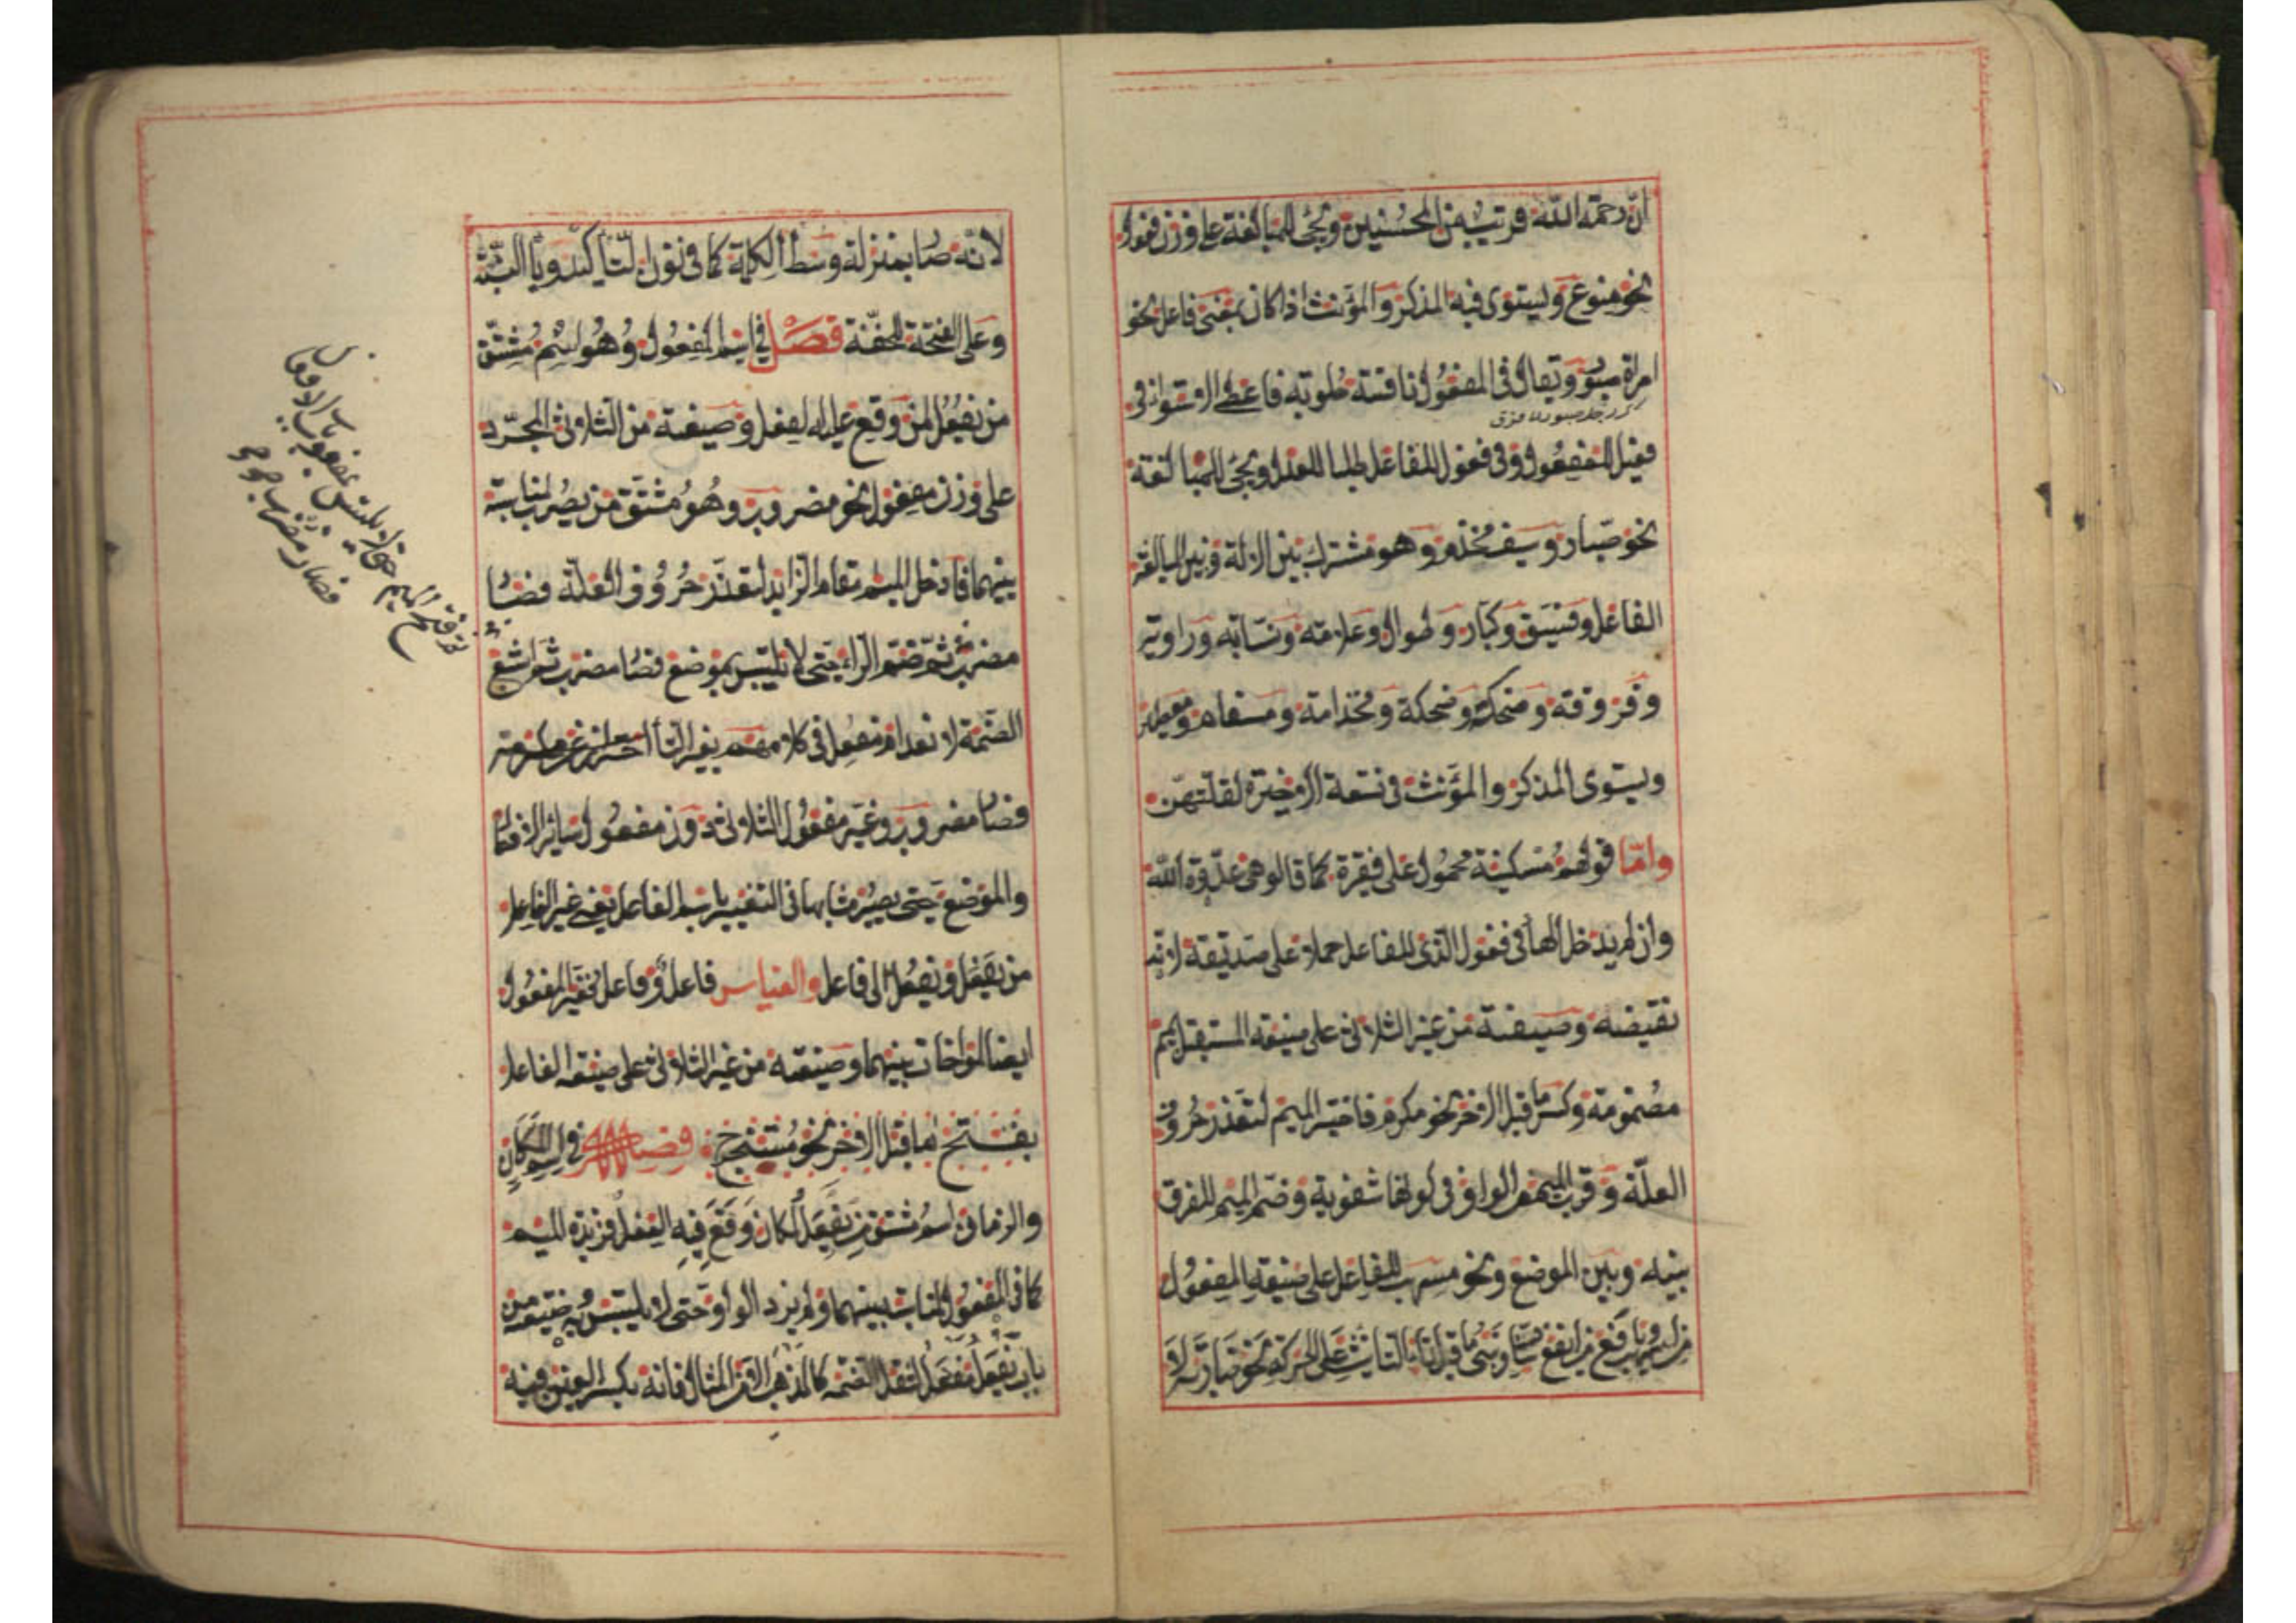 ان رحمة الله قريب من المحسنين ويجئ للمبالغة على وزن فعول
نحو منوع ويستوى فيه المذكر والمؤنث اذا كان بمعنى فاعل نحو
امراة صبور ويقال فى المفعول ناقة حلوبة فاعطى الاستواء فى
فعيل للمفعول وفى فعول للفاعل طلبا للعدل ويجئ للمبالغة
نحو صبار وسيف مخذم وهو مشترك بين الالة وبين المبالغة
الفاعل وفسيق وكبار وطوال وعلامة ونسابة وراوية
وفروقة وضحكة وضحكة ومخدامة ومسقام ومعطير
ويستوى المذكر والمؤنث فى تسعة الاخيرة لقلتهن
واما قولهم مسكينة محمول على فقيرة كما قالو هى عدوة الله
وان لم يدخل الهأ فى فعول الذى للفاعل حملا على صديقة لانه
نقيضه وصيغة من غير الثلاثى على صيغة المستقبل بميم
مضمومة وكسر ما قبل الاخر نحو مكرم فاختير الميم لتعذر حروف
العلة وقرب الميم من الواو فى كونها شفوية وضم الميم للفرق
بينه وبين الموضع ونحو مسهب للفاعل على صيغة المفعول
من اسهب ويافع من ايفع شاذ ويبنى ما قبل تاء التانيث على الحركة نحو ضاربة لا
لانه صار بمنزلة وسط الكلمة كما فى نون التأكيد ويأ النسبة
وعلى الفتحة للخفة فصل فى اسم المفعول وهو اسم مشتق
من يفعل لمن وقع عليه الفعل وصيغة من الثلاثى المجرد
على وزن مفعول نحو مضروب وهو مشتق من يضرب لمناسبة
بينهما فادخل الميم مقام الزايد لتعذر حروف العلة فصار
مضرب ثم ضم الراء حتى لا يلتبس بموضع فصار مضرب ثم اشبع
الضمة لانعدام مفعل فى كلامهم بغير التأ احتراز عن مكرمة
فصار مضروب وغير مفعول الثلاثى دون مفعول سائر الافعال
والموضع حتى يصير مشابها فى التغيير باسم الفاعل يعنى غير الفاعل
من يفعل ويفعل الى فاعل والقياس فاعل وفاعل فغير المفعول
ايضا لمواخات بينهما وصيغته من غير الثلاثى على صيغة الفاعل
بفتح ما قبل الاخر نحو مستخرج فصل فى اسم المكان
والزمان اسم مشتق من يفعل لمكان وقع فيه الفعل فزيدة الميم
كما فى المفعول لمناسبة بينهما ولم يزد الواو حتى لا يلتبس به صيغته من
باب يفعل مفعل لثقل الضمة كالمذهب الا من المثال فانه بكسر العين فيه
ثم فتح الميم حتى لا يلتبس بمفعول باب الافعال
فصار مضرب